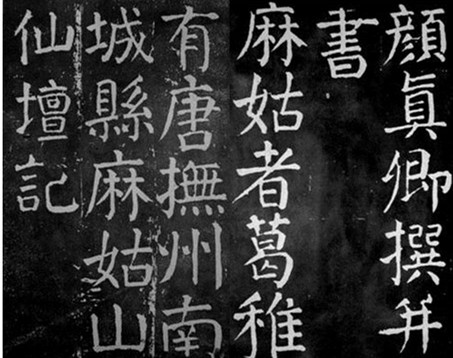 顔眞卿撰并
書
麻姑者葛稚
有唐撫州南
城縣麻姑山
仙壇記